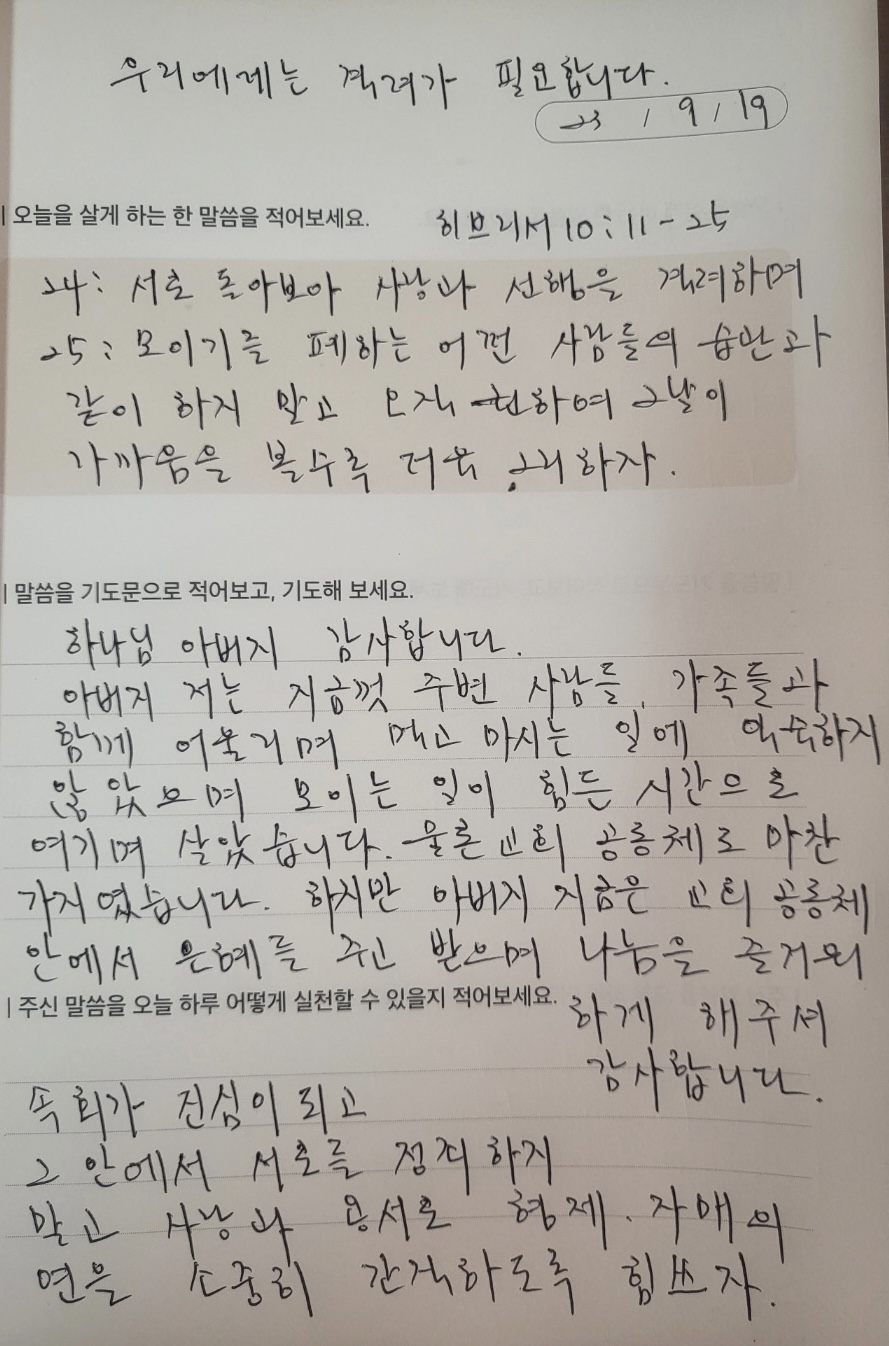 우리에게는 격려가 필요합니다.
23 / 9 / 19
| 오늘을 살게 하는 한 말씀을 적어보세요. 히브리서 10:11-25
24: 서로 돌아보아 사랑과 선행을 격려하며
25: 모이기를 폐하는 어떤 사람들의 습관과
같이 하지 말고 오직 권하여 그날이
가까움을 볼수록 더욱 그리하자.
| 말씀을 기도문으로 적어보고, 기도해 보세요.
하나님 아버지 감사합니다.
아버지 저는 지금껏 주변 사람들, 가족들과
함께 어울리며 먹고 마시는 일에 익숙하지
않았으며 모이는 일이 힘든 시간으로
여기며 살았습니다. 물론 교회 공동체도 마찬
가지였습니다. 하지만 아버지 지금은 교회 공동체
안에서 은혜를 주고 받으며 나눔을 즐거워
하게 해주셔
감사합니다.
| 주신 말씀을 오늘 하루 어떻게 실천할 수 있을지 적어보세요.
속회가 진심이 되고
그 안에서 서로를 정죄하지
말고 사랑과 용서로 형제.자매의
연을 소중히 간직하도록 힘쓰자.